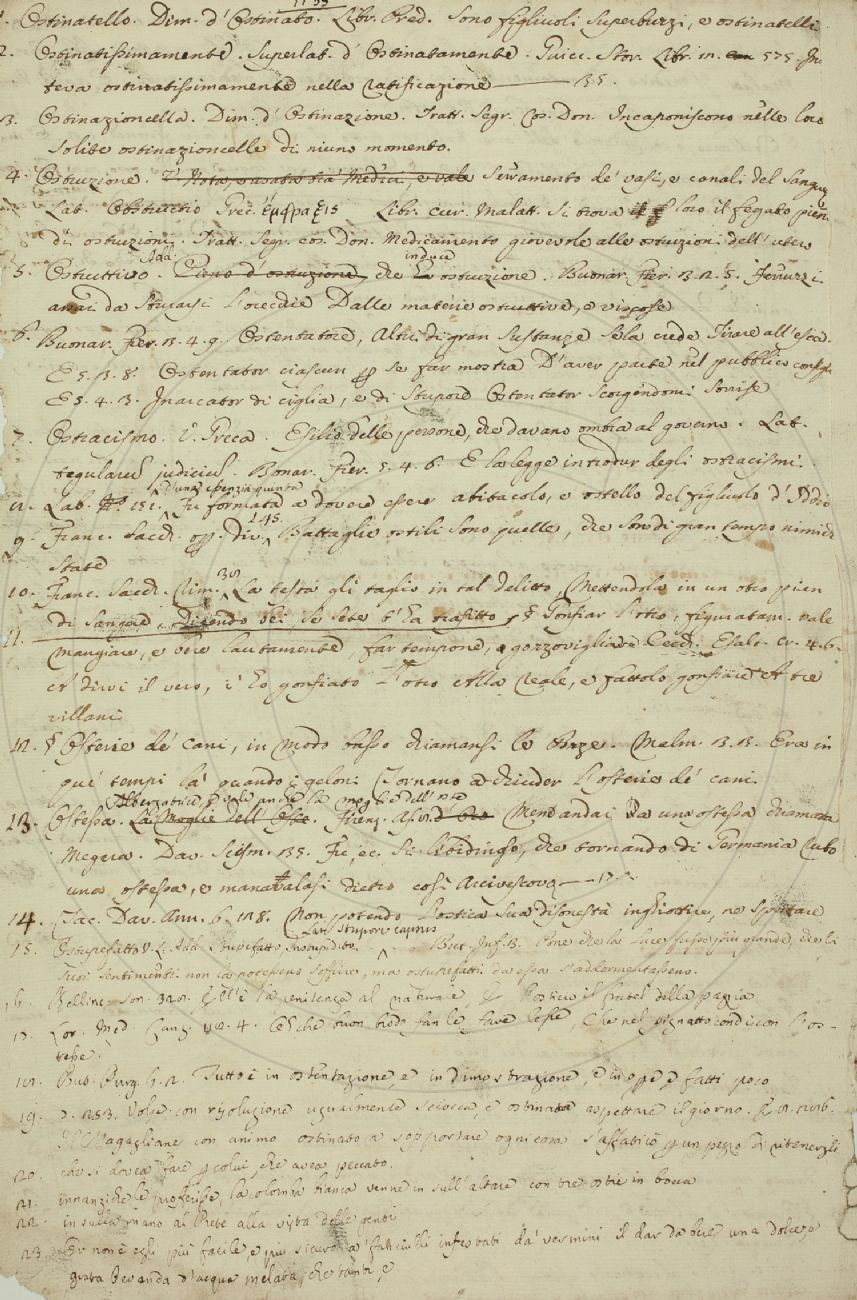 1. Ostinatello. Dim. d'Ostinato. Libr. Pred. Sono figliuoli superbuzzi, e ostinatelli
2. Ostinatissimamente. Superlat. d'Ostinatamente. Guicc. Stor. Libr. 575. In
teva ostinatissimamente nella ratificazione
3. Ostinazioncella. Dim. d'Ostinazione. Tratt. Segr. Cos. Don. Incaponiscono nelle loro
solite ostinazioncelle di niuno momento.
4. Ostruzione. Serramento de' vasi, e canali del sangue
Lat. Obstructio Grec. Libr. cur. Malatt. Si trova loro il fegato pien
di ostruzioni. Tratt. Segr. cos. Don. Medicamento giovevole alle ostruzioni dell'utero
Add. induce
5. Ostruttivo. Pieno d'ostruzione, che ostruzione. Buonar. Fier. Ferruzzi
da sturarsi l'orecchie Dalle materie ostruttive, e
6. Buonar. Fier. 4. 9. Ostentatore, Altri di gran sustanze se la crede Tirare all'esca.
E 5. 8. Ostentator ciascun se far mostra D'aver parte nel pubblico
E 5. 4. 3. Inarcator di ciglia, e di stupore Ostentator scorgendomi sorrise
7. Ostracismo. V. Greca. Esilio delle persone, che davano ombra al governo. Lat.
judicium. Bonar. Fier. 5. 4. 6. E la legge introdur degli ostracismi.
d'una essenzia quinta
Lab. Fu formata a dovere essere abitacolo, e ostello del figliuolo d'Iddio
145.
9. Franc. Sacch. Op. Div. Battaglie ostili sono quelle, che sono di gran tempo nimici
state
10. Franc. Sacch. Rim. La testa gli taglio in tal delitto, Mettendola in un otro pien
di sangue, dicendo bei, se sete t'ha trafitto
11. § Gonfiar l'otro, figuratam. vale
mangiare, e bere lautamente, far tempone, gozzovigliare Cecch. Esalt. cr. 4. 6.
A dirvi il vero, i' ho gonfiato l'otro Alla reale, e fattolo gonfiare A tre
villani
12. § Osterie de' cani, in modo basso chiamansi le Pozze. Malm. Era in
que' tempi là quando i geloni Tornano a chiuder l'osterie de' cani.
Albergatrice, e vale anche la moglie dell'oste
13. Ostessa. La Moglie dell'Oste. Firenz. Asin. Mendandai Da una ostessa chiamata
Megera. Dav. Scism. 135. Fu ec. sì libidinoso, che tornando di Germania rubò
una ostessa, e mandavalasi dietro così Arcivescovo
14. Tac. Dav. Ann. 6. 128. Non potendo l'ostica sua disonestà inghiottire, ne sputare
Lat. Stupore captus
15. Ostupefatto V. L. Add. Stupefatto, Instupidito. But. Inf. Pone che la luce fusse più grande, che li
suoi sentimenti non la potessono soffrire, ma ostupefatti da essa s'addormentassono.
16. Bellinc. son. È la penitenza al naturale, l'ostico il fratel della pazzia
17. Lor. Med. Canz. 4. Ceci che buon brodo fan le fave lesse, Che nel pignatto condiscon l'os-
tesse.
But. Purg. Tutto è in ostentazione, e in dimostrazione, e in opere, e fatti poco
19. 253. Volle con risoluzione ugualmente sciocca, e ostinata aspettare il giorno.
Il Magaglianes con animo ostinato a sopportare ogni cosa s'affaticò un pezzo di ritenergli
20. che si dovea fare colui, che avea peccato.
21. innanzi che le proferisse, la colomba bianca venne in sull'altare con tre ostie in bocca
22. in sulla mano al Prete alla vista delle genti
23. non è egli più facile, e più sicuro a' fanciulli infestati da' vermini il dar da bere una dolce, e
grata bevanda d'acqua melata, che tanti, e